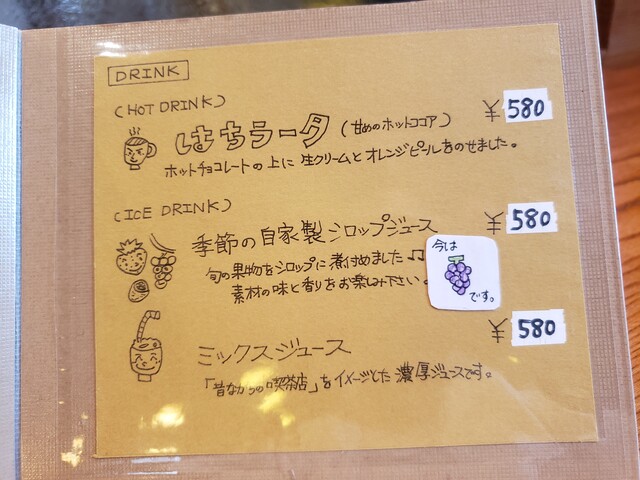 DRINK
(HOT DRINK)
はちラータ (甘めのホットココア) ¥580
ホットチョコレートの上に 生クリームとオレンジピールをのせました。
(ICE DRINK)
季節の自家製シロップジュース ¥580
旬の果物をシロップに煮付めました♫
素材の味と香りをお楽しみ下さい。
今は
です。
ミックスジュース ¥580
「昔ながらの喫茶店」をイメージした濃厚ジュースです。